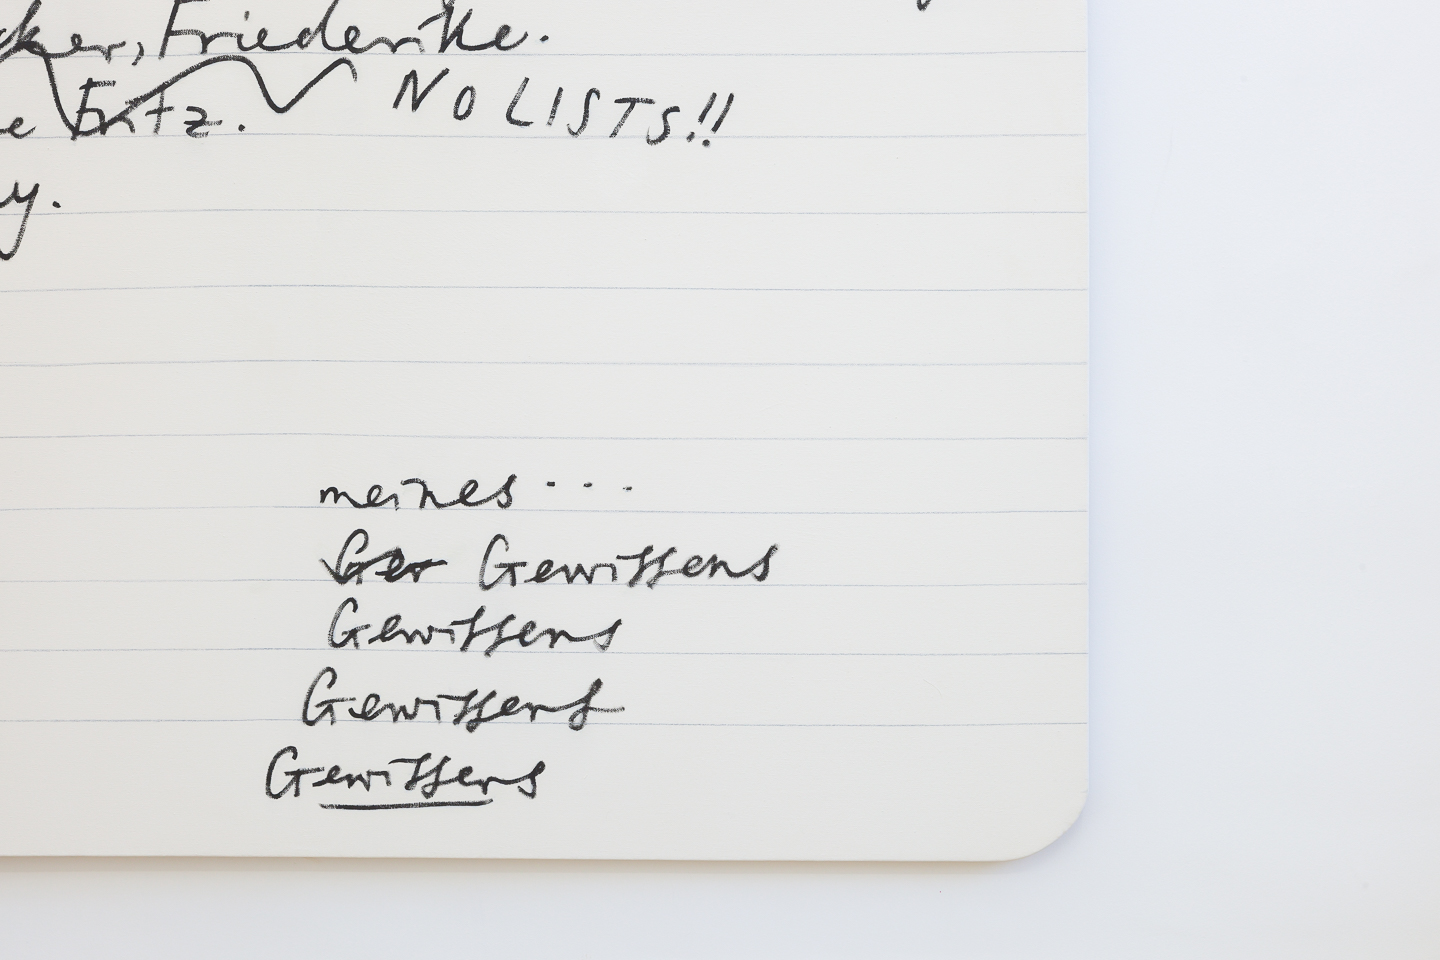 cker, Friederike.
e Fritz. NO LISTS!!
y.
meines ...
Ger Gewissens
Gewissens
Gewissens
Gewissens